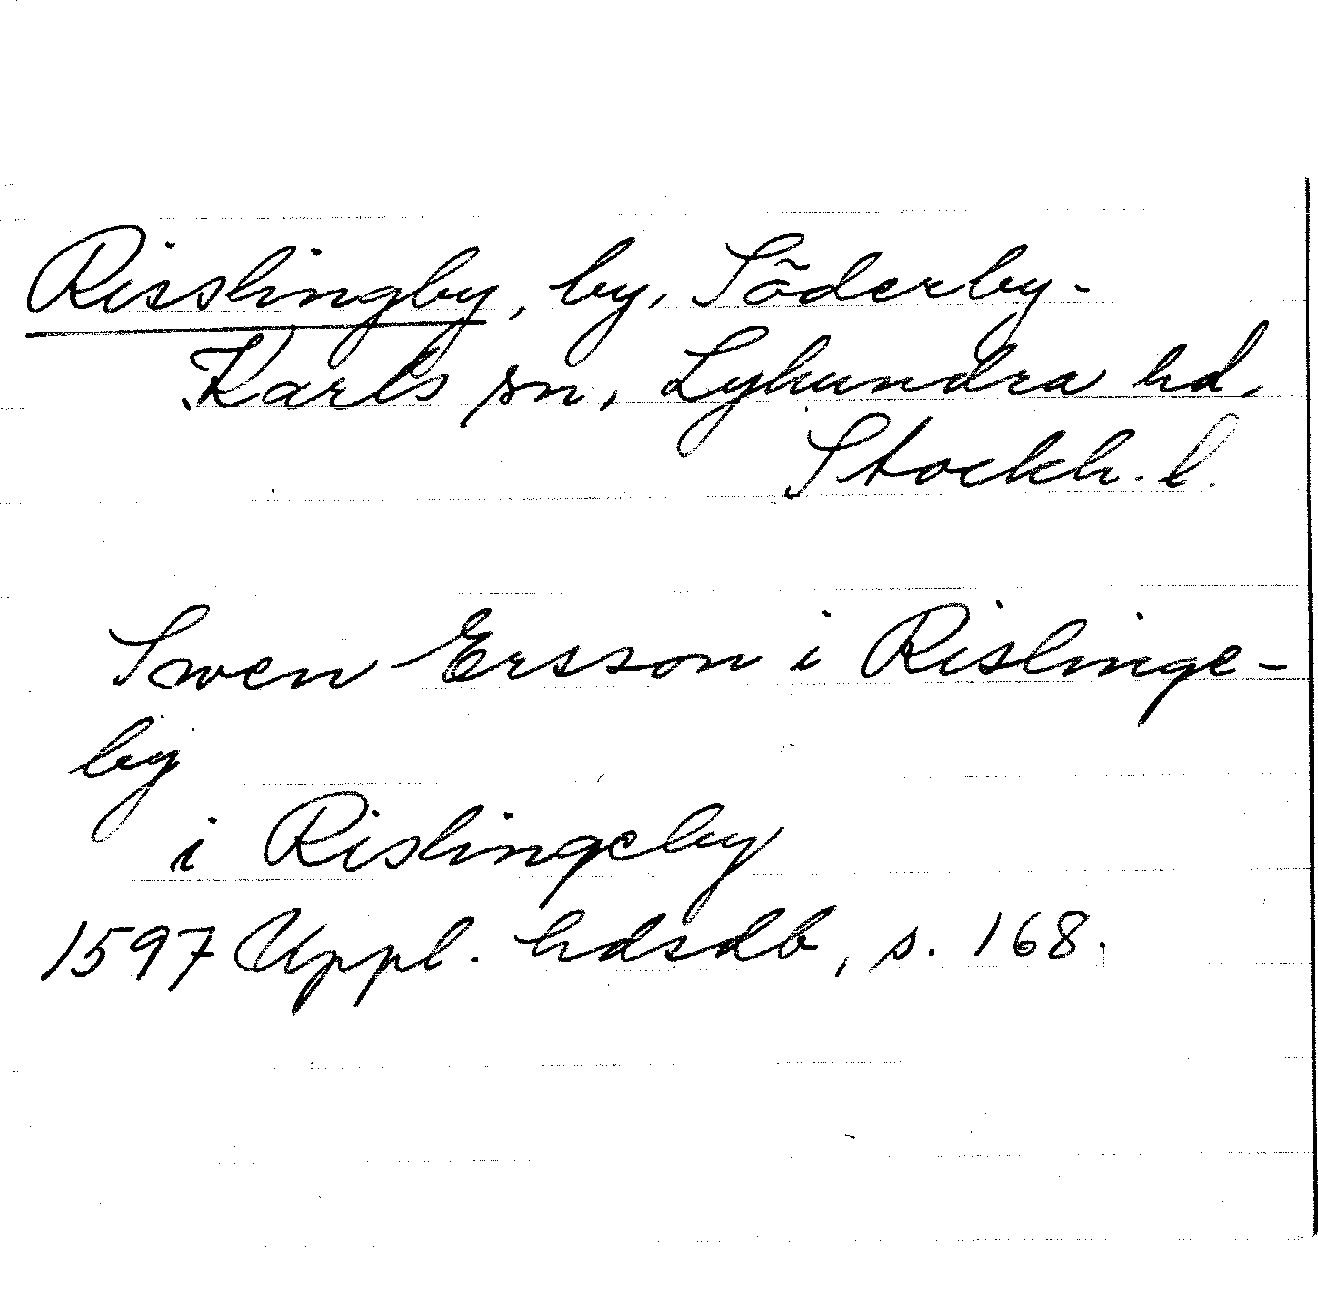 Risslingby, by, Söderby-
Karls sn, Lyhundra hd,
Stockh. l.
Swen Ersson i Rislinge-
by
i Rislingeby
1597 Uppl. hdsdb, s. 168.